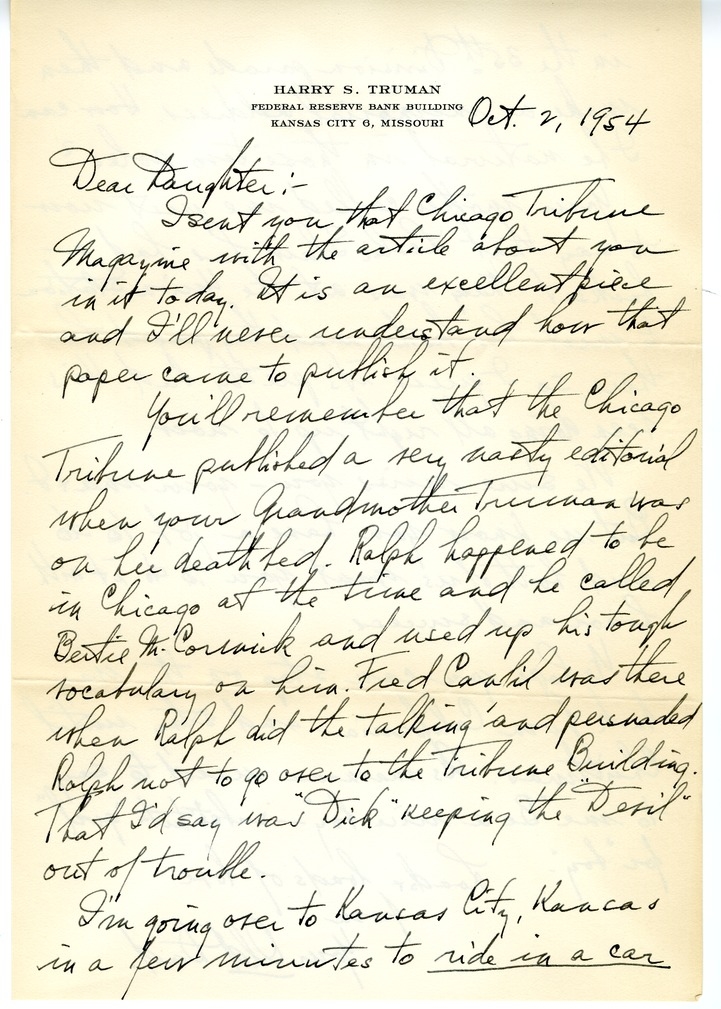 HARRY S. TRUMAN
FEDERAL RESERVE BANK BUILDING
KANSAS CITY 6, MISSOURI
Oct. 2, 1954
Dear Daughter:-
I sent you that Chicago Tribune
Magazine with the article about you
in it today. It is an excellent piece
and I'll never understand how that
paper came to publish it.
You'll remember that the Chicago
Tribune published a very nasty editorial
when your Grandmother Truman was
on her deathbed. Ralph happened to be
in Chicago at the time and he called
Bertie McCormick and used up his tough
vocabulary on him. Fred Canfil was there
when Ralph did the talking and persuaded
Ralph not to go over to the Tribune Building.
That I'd say was "Dick" keeping the "Devil"
out of trouble.
I'm going over to Kansas City, Kansas
in a few minutes to ride in a car